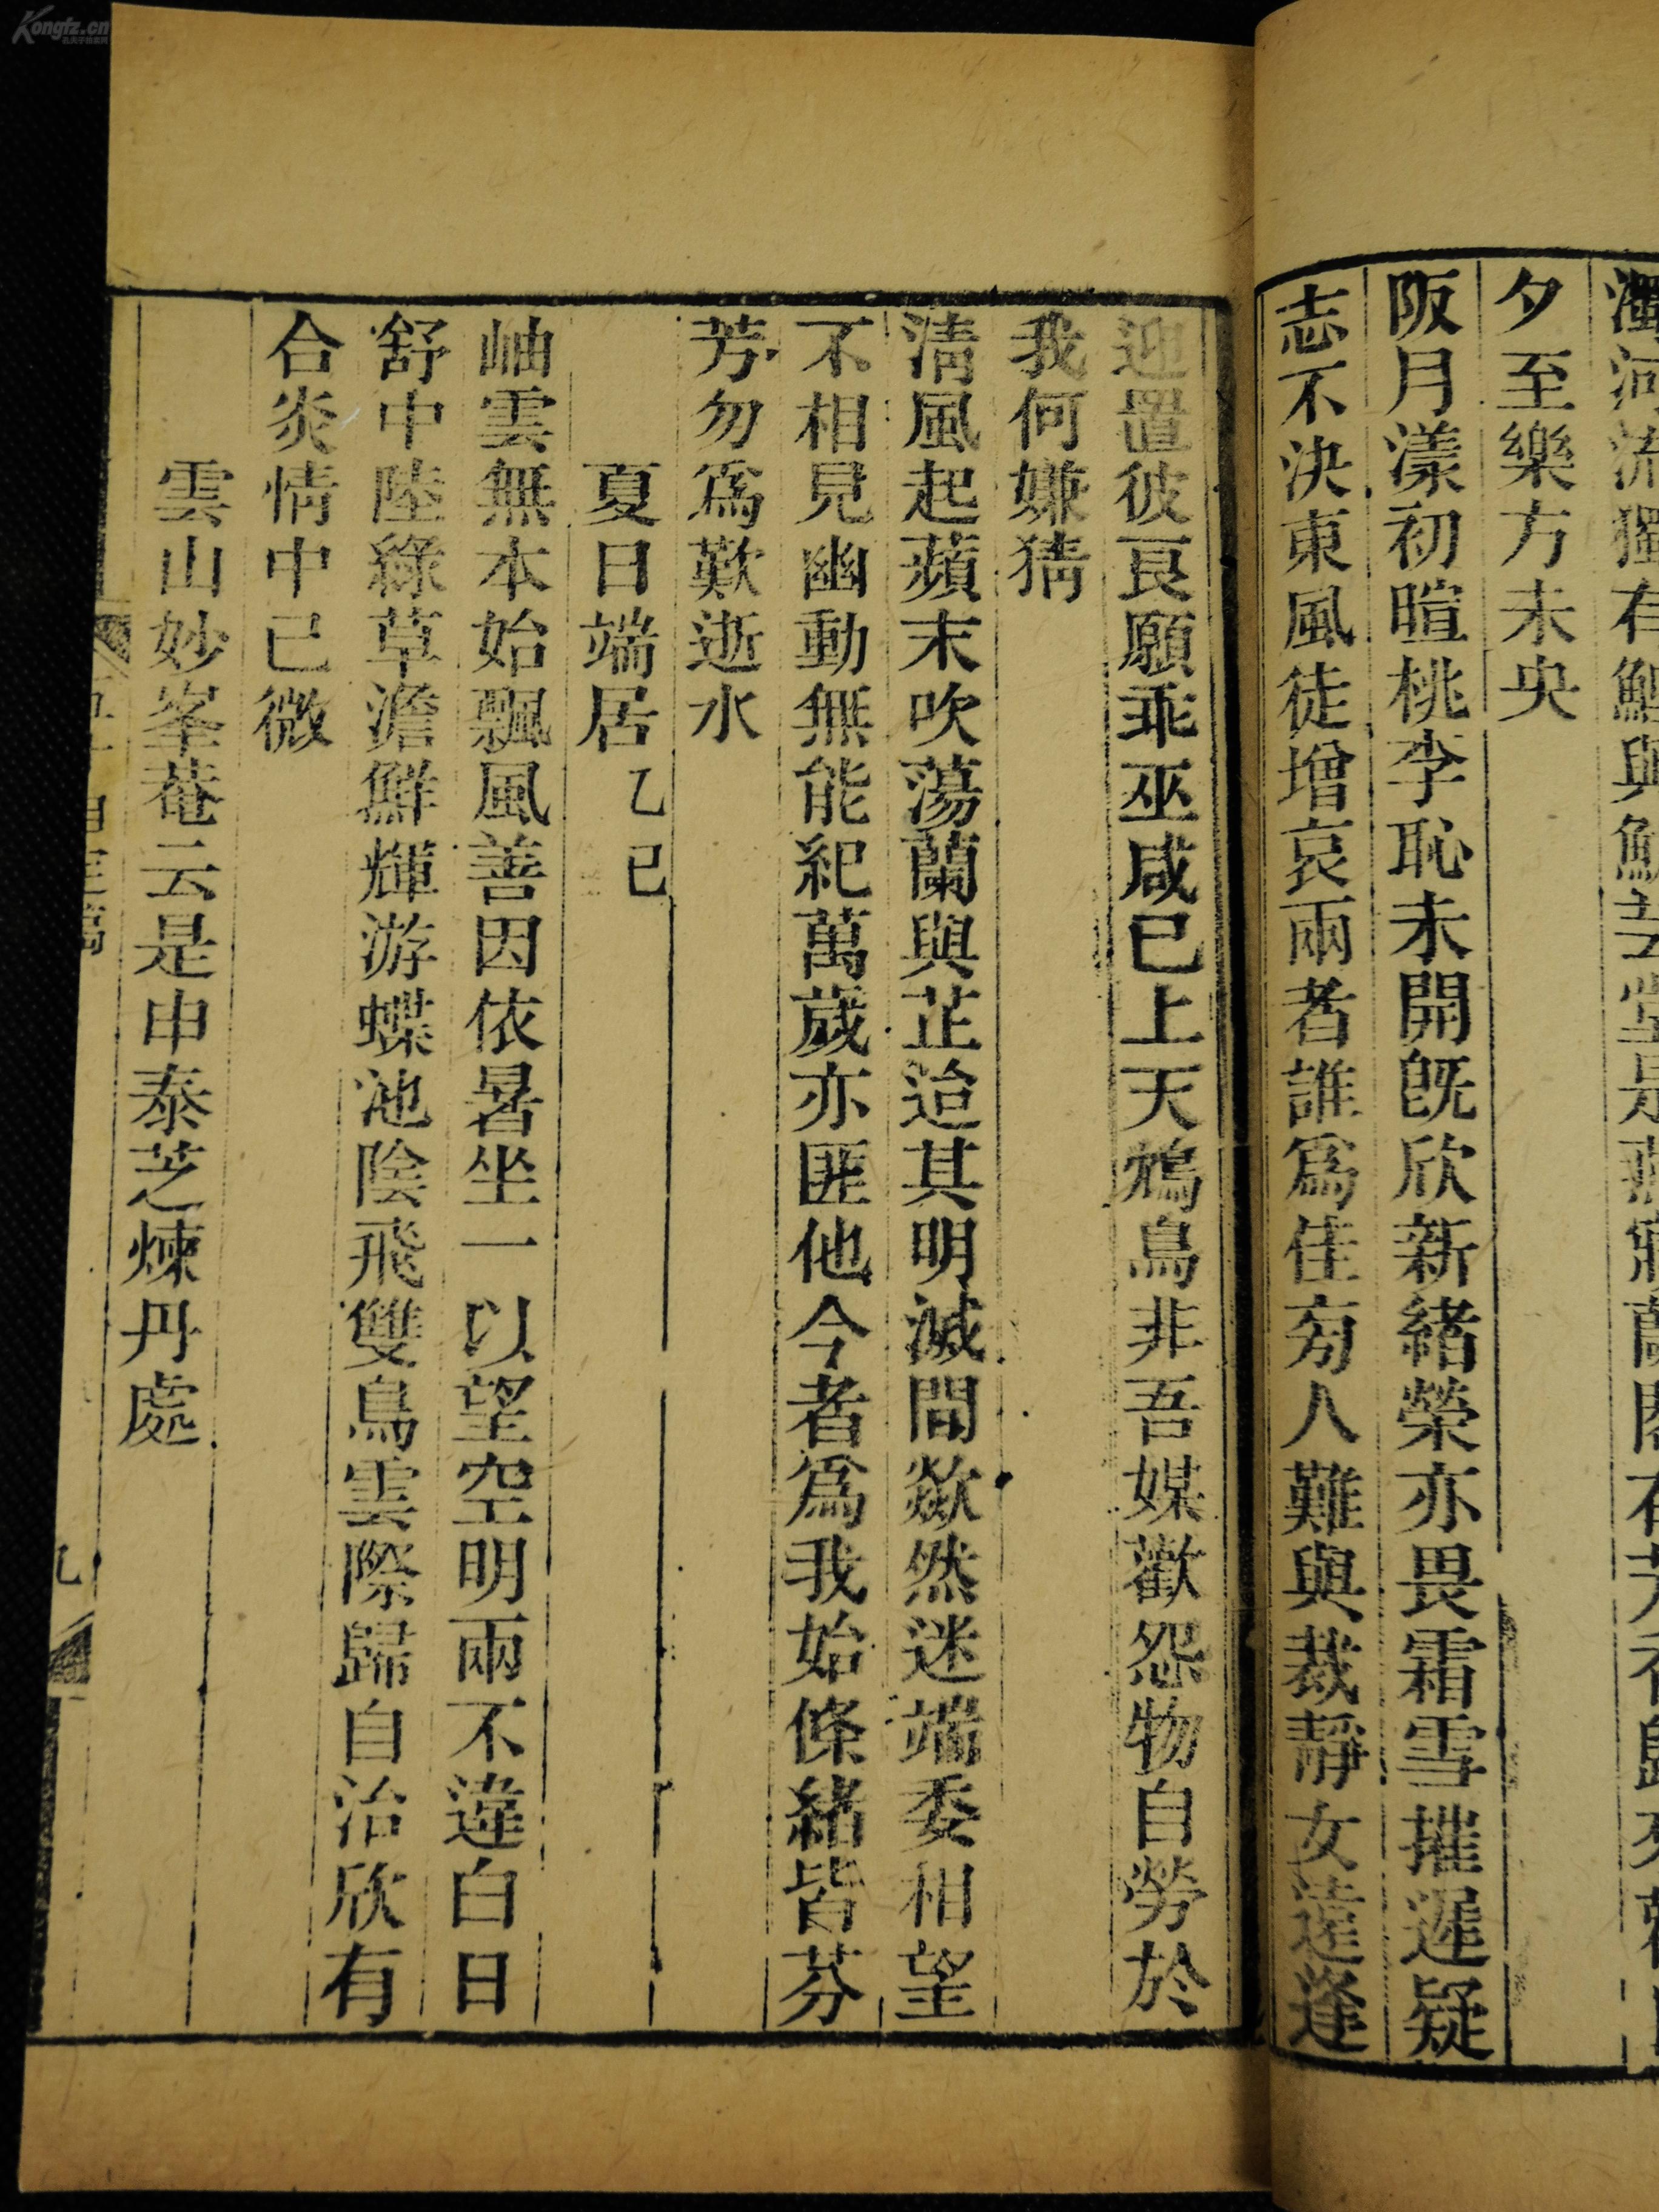 夕至樂方未央
阪月漾初暄桃李恥未開旣欣新緒榮亦畏霜雪摧遲疑
志不決東風徒增哀兩者誰爲佳旁人難與裁靜女遠逢
迎置彼良願乖巫咸已上天鴆鳥非吾媒歡怨物自勞於
我何嫌猜
淸風起蘋末吹蕩蘭與芷迨其明滅間欻然迷端委相望
不相見幽動無能紀萬歲亦匪他今者爲我始條緒皆芬
芳勿爲歎逝水
夏日端居乙巳
岫雲無本始飄風善因依暑坐一以望空明兩不違白日
舒中陸綠草澹鮮輝游蝶池陰飛雙鳥雲際歸自治欣有
合炎情中已微
雲山妙峯菴云是申泰芝煉丹處
九
Kongfz.cn